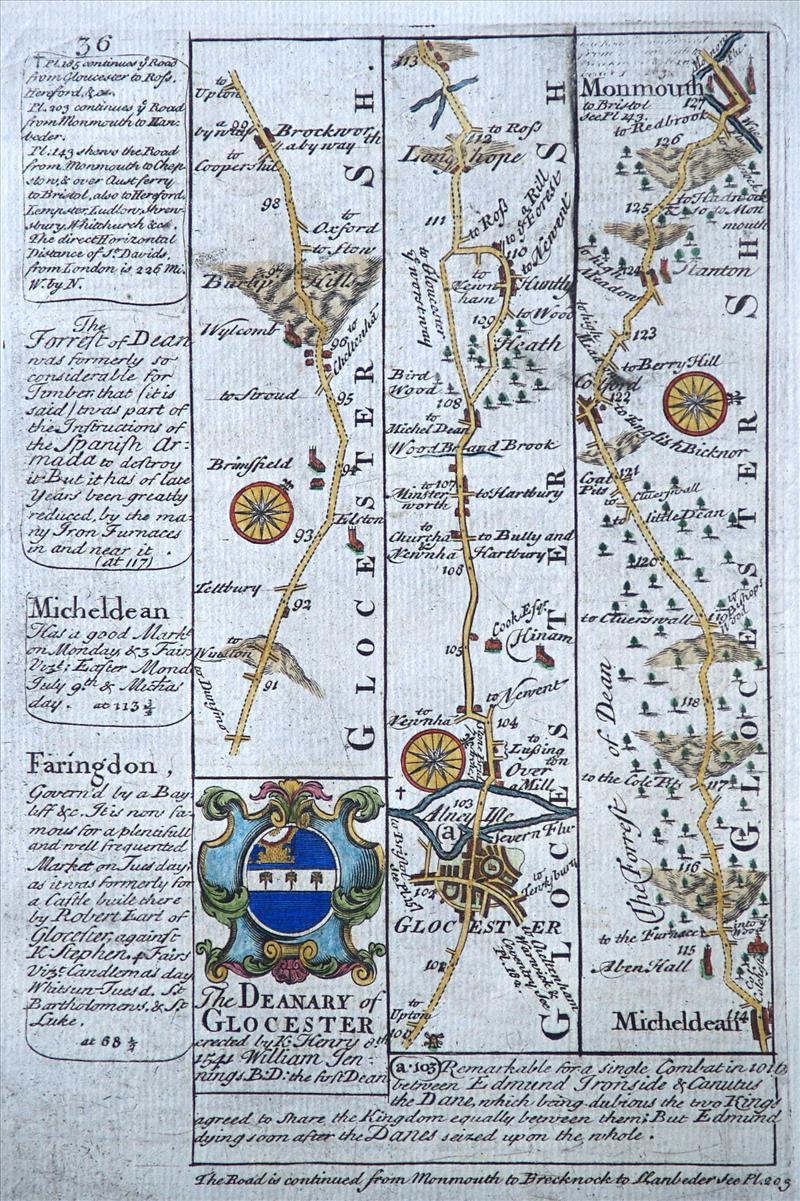 36
† Pl. 185 continues ye Road
from Gloucester to Ross,
Hereford, &ca.
Pl. 203 continues ye Road
from Monmouth to Llan-
beder.
Pl. 143 shews the Road
from Monmouth to Chep-
stow, & over Aust ferry
to Bristol, also to Hereford,
Lempster, Ludlow, Shrew-
sbury, Whitchurch &ca.
The direct Horizontal
Distance of St. Davids,
from London is 226 Mi.
W. by N.
The
Forrest of Dean
was formerly so
considerable for
Timber, that (it is
said) twas part of
the Instructions of
the Spanish Ar-
mada to destroy
it. But it has of late
Years been greatly
reduced, by the ma-
ny Iron Furnaces
in and near it.
(at 117)
Micheldean
Has a good Markt.
on Monday, & 3 Fairs
Vizt; Easter Mond
July 9th & Michas
day. at 113 3/4
Faringdon,
Govern'd by a Bay-
liff &c. It is now fa-
mous for a plentifull
and well frequented
Market on Tuesday,
as it was formerly for
a Castle built there
by Robert Earl of
Glocester, against
K. Stephen. 4 Fairs
Vizt. Candlemas day
Whitsun-Tuesd. St.
Bartholomews, & St.
Luke.
at 68 1/2
GLOCESTER SH.
to
Upton
a 99
by way
Brockworth
a by way
to
Coopers hil
98
to
Oxford
to Stow
Burlip Hills
Wylcomb
96 to
Cheltenham
95
to Stroud
94
Brimsfield
93
Elston
Tettbury
92
to
Winston
91
The DEANARY of
GLOCESTER
erected by K. Henry 8th
1541 William Jen-
nings. B:D: the first Dean
GLOCESTER SH
113
112
to Ross
Longhope
111
to Ross
to a Rill
to ye Forest
110
to Newent
to
Newn
ham
Huntly
to Glocester
ye worst way
109
to Wood
Heath
Bird
Wood
108
to
Michel Dean
Wood Br. and Brook
to 107
Minster
worth
to Hartbury
to
Churcha
& Newnha
to Bully and
Hartbury
106
Cook Esqr.
Hinam
105
to Newent
to
Newnha
104
to
Lusing
ton
Over
a Mill
103
Alney Isle
a
Severn Flu.
to
Tewksbury
102
GLOCESTER
to Cheltenham
Warwick &
Coventry, See
Pl. 182.
101
to
Upton
100
GLOCESTER SH
Monmouth
127
to Bristol
see Pl. 143.
to Redbrook
126
125
to Hadnock
& so to Mon
mouth
to high
Meadow
124
Stanton
123
to Berry Hill
Colford
122
to English Bicknor
Coal
Pits
121
to Cluerswall
to little Dean
120
to Cluerswall
to
Bishops
Wood
118
The Forrest of Dean
to the Cole Pits
117
116
into ye
Wood
to the Furnace
115
Aben Hall
Micheldean
114
a. 103 Remarkable for a single Combat in 1016
between Edmund Ironside & Canutus
the Dane, which being dubious the two Kings
agreed to Share the Kingdom equally between them; But Edmund
dying soon after the Danes seized upon the whole.
The Road is continued from Monmouth to Brecknock to Llanbeder see Pl. 203